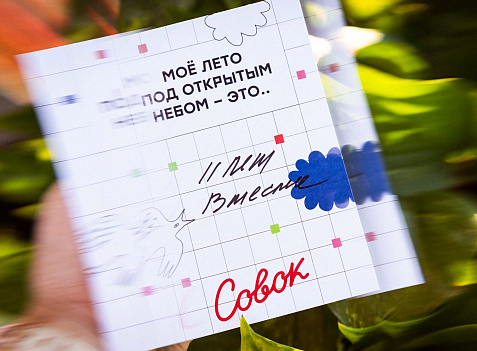 МОЁ ЛЕТО
ПОД ОТКРЫТЫМ
НЕБОМ – ЭТО..
11 лет
Вместе
Совок